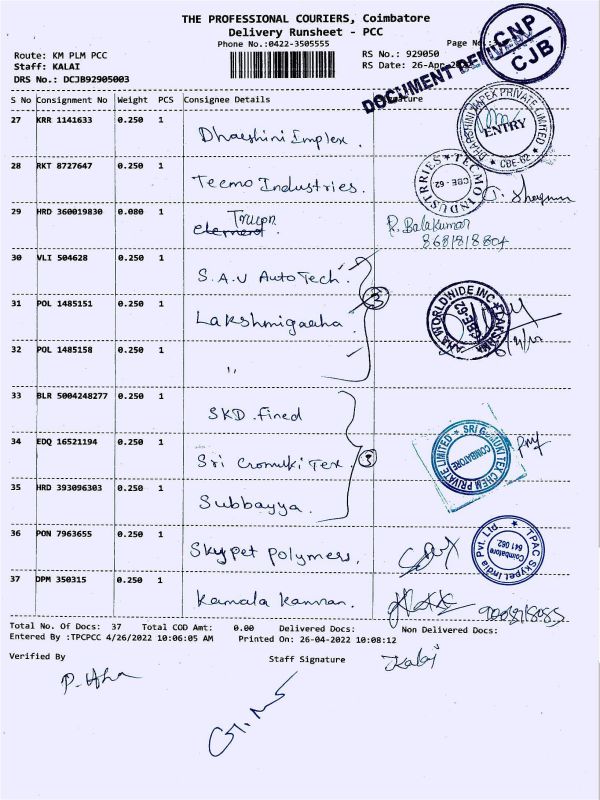 THE PROFESSIONAL COURIERS, Coimbatore
Delivery Runsheet - PCC
Phone No.:0422-3505555
Page No.:
Route: KM PLM PCC
RS No.: 929050
Staff: KALAI
RS Date: 26-Apr-
DRS No.: DCJB92905003
CNP
CJB
DOCUMENT DELIVERY
S No Consignment No Weight PCS Consignee Details
27 KRR 1141633 0.250 1
Dharshini Implex.
DHARSHINI IMPEX PRIVATE LIMITED
ENTRY
CBE-62
28 RKT 8727647 0.250 1
Tecmo Industries.
TECMO INDUSTRRIES
CBE - 62
29 HRD 360019830 0.080 1
R. Balakumar
8681818804
30 VLI 504628 0.250 1
S.A.V Auto Tech.
31 POL 1485151 0.250 1
3
WORLDWIDE INC
CBE 62
32 POL 1485158 0.250 1
"
33 BLR 5004248277 0.250 1
SKD. Fined
34 EDQ 16521194 0.250 1
CHEM PRIVATE LIMITED
COIMBATORE
35 HRD 393096303 0.250 1
Subbayya.
36 PON 7963655 0.250 1
Skypet polymers.
TPAC Skypet India Pvt. Ltd.
Coimbatore
641 062.
37 DPM 350315 0.250 1
Kamala Kannan.
Total No. Of Docs: 37 Total COD Amt: 0.00 Delivered Docs: Non Delivered Docs:
Entered By :TPCPCC 4/26/2022 10:06:05 AM Printed On: 26-04-2022 10:08:12
Verified By
Staff Signature
Kalai